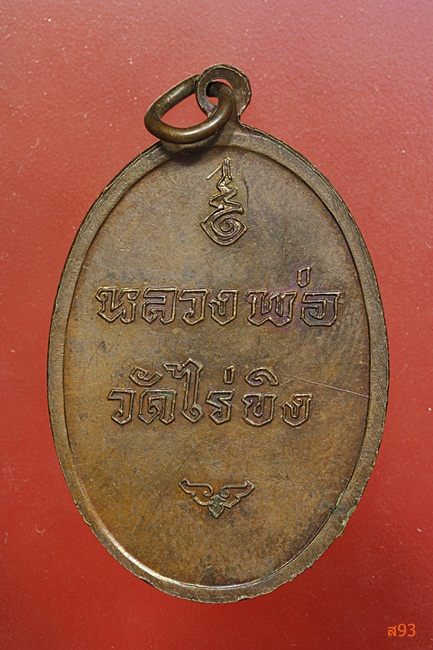 หลวงพ่อ
วัดไร่ขิง
ส93